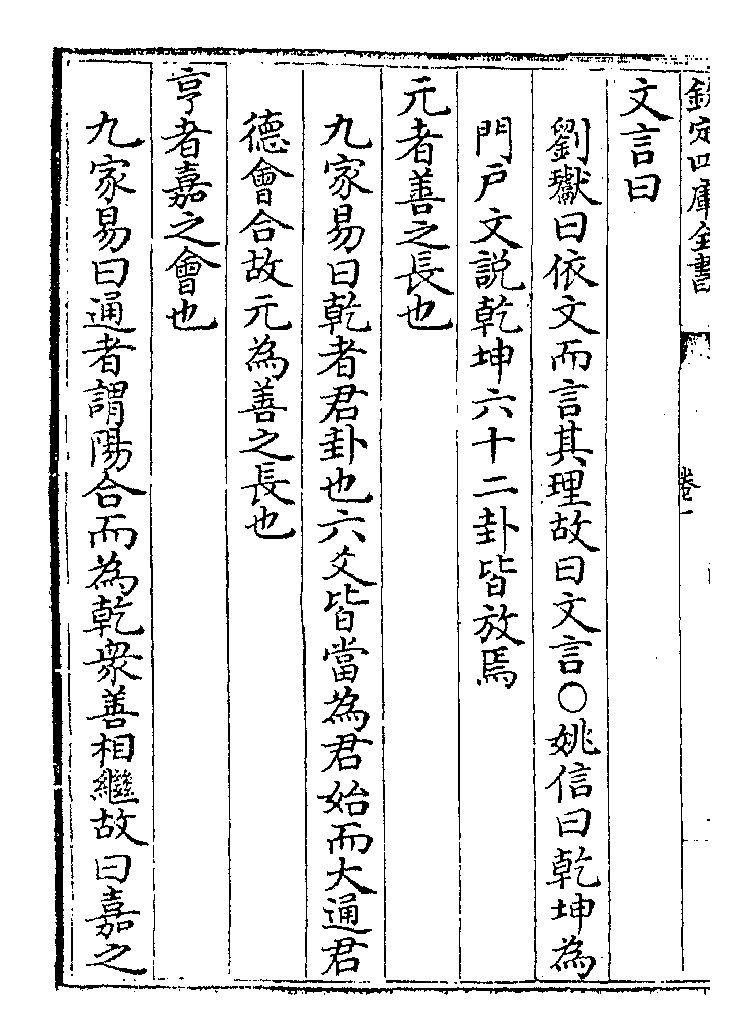 欽定四庫全書
卷一
文言曰
劉瓛曰依文而言其理故曰文言○姚信曰乾坤為
門戶文說乾坤六十二卦皆放焉
元者善之長也
九家易曰乾者君卦也六爻皆當為君始而大通君
德會合故元為善之長也
亨者嘉之會也
九家易曰通者謂陽合而為乾衆善相繼故曰嘉之